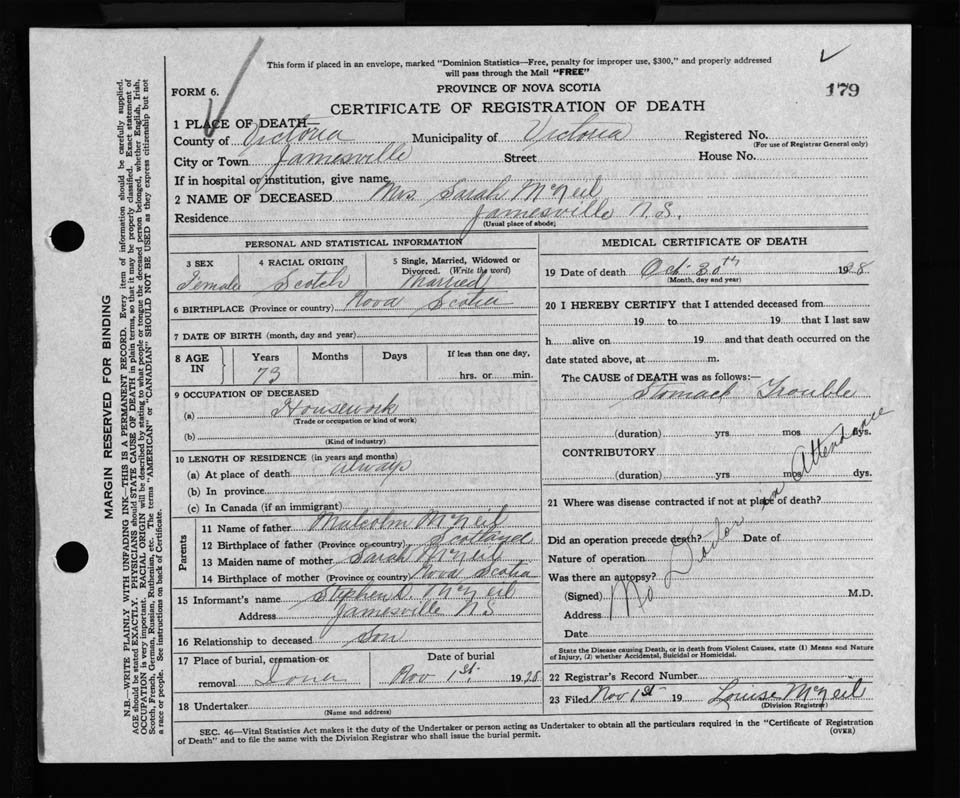 This form if placed in an envelope, marked "Dominion Statistics—Free, penalty for improper use, $300," and properly addressed
will pass through the Mail "FREE"
FORM 6.
PROVINCE OF NOVA SCOTIA
179
CERTIFICATE OF REGISTRATION OF DEATH
1 PLACE OF DEATH—
County of Victoria Municipality of Victoria Registered No.
(For use of Registrar General only)
City or Town Jamesville Street House No.
If in hospital or institution, give name
2 NAME OF DECEASED Mrs. Sarah McNeil
Residence Jamesville N.S.
(Usual place of abode)
PERSONAL AND STATISTICAL INFORMATION
3 SEX 4 RACIAL ORIGIN 5 Single, Married, Widowed or
Divorced. (Write the word)
Female Scotch Married
6 BIRTHPLACE (Province or country) Nova Scotia
7 DATE OF BIRTH (month, day and year)
8 AGE IN Years Months Days If less than one day,
73 hrs. or min.
9 OCCUPATION OF DECEASED
(a) Housework
(Trade or occupation or kind of work)
(b)
(Kind of industry)
10 LENGTH OF RESIDENCE (in years and months)
(a) At place of death always
(b) In province
(c) In Canada (if an immigrant)
Parents
11 Name of father Malcolm McNeil
12 Birthplace of father (Province or country) Scotland
13 Maiden name of mother Sarah McNeil
14 Birthplace of mother (Province or country) Nova Scotia
15 Informant's name Stephen McNeil
Address Jamesville N.S
16 Relationship to deceased Son
17 Place of burial, cremation or Date of burial
removal Iona Nov 1st. 1928
18 Undertaker
(Name and address)
MEDICAL CERTIFICATE OF DEATH
19 Date of death Oct 30th 1928
(Month, day and year)
20 I HEREBY CERTIFY that I attended deceased from
19 to 19 that I last saw
h alive on 19 and that death occurred on the
date stated above, at m.
The CAUSE of DEATH was as follows:—
Stomach Trouble
(duration) yrs mos dys.
CONTRIBUTORY
(duration) yrs mos dys.
21 Where was disease contracted if not at place of death?
Did an operation precede death? Date of
Nature of operation
Was there an autopsy?
(Signed) M.D.
Address
Date
No Doctor in Attendance
State the Disease causing Death, or in death from Violent Causes, state (1) Means and Nature
of Injury, (2) whether Accidental, Suicidal or Homicidal.
22 Registrar's Record Number
23 Filed Nov 1st 19 Louise McNeil
(Division Registrar)
SEC. 46—Vital Statistics Act makes it the duty of the Undertaker or person acting as Undertaker to obtain all the particulars required in the "Certificate of Registration
of Death" and to file the same with the Division Registrar who shall issue the burial permit.
(OVER)
MARGIN RESERVED FOR BINDING
N.B.—WRITE PLAINLY WITH UNFADING INK—THIS IS A PERMANENT RECORD. Every item of information should be carefully supplied.
AGE should be stated EXACTLY. PHYSICIANS should STATE CAUSE OF DEATH in plain terms, so that it may be properly classified. Exact statement of
OCCUPATION is very important. RACIAL ORIGIN will be described by stating to what people or tongue the deceased person belonged, whether English, Irish,
Scotch, French, German, Russian, Ruthenian, etc. The terms "AMERICAN" or "CANADIAN" SHOULD NOT BE USED as they express citizenship but not
a race or people. See instructions on back of Certificate.